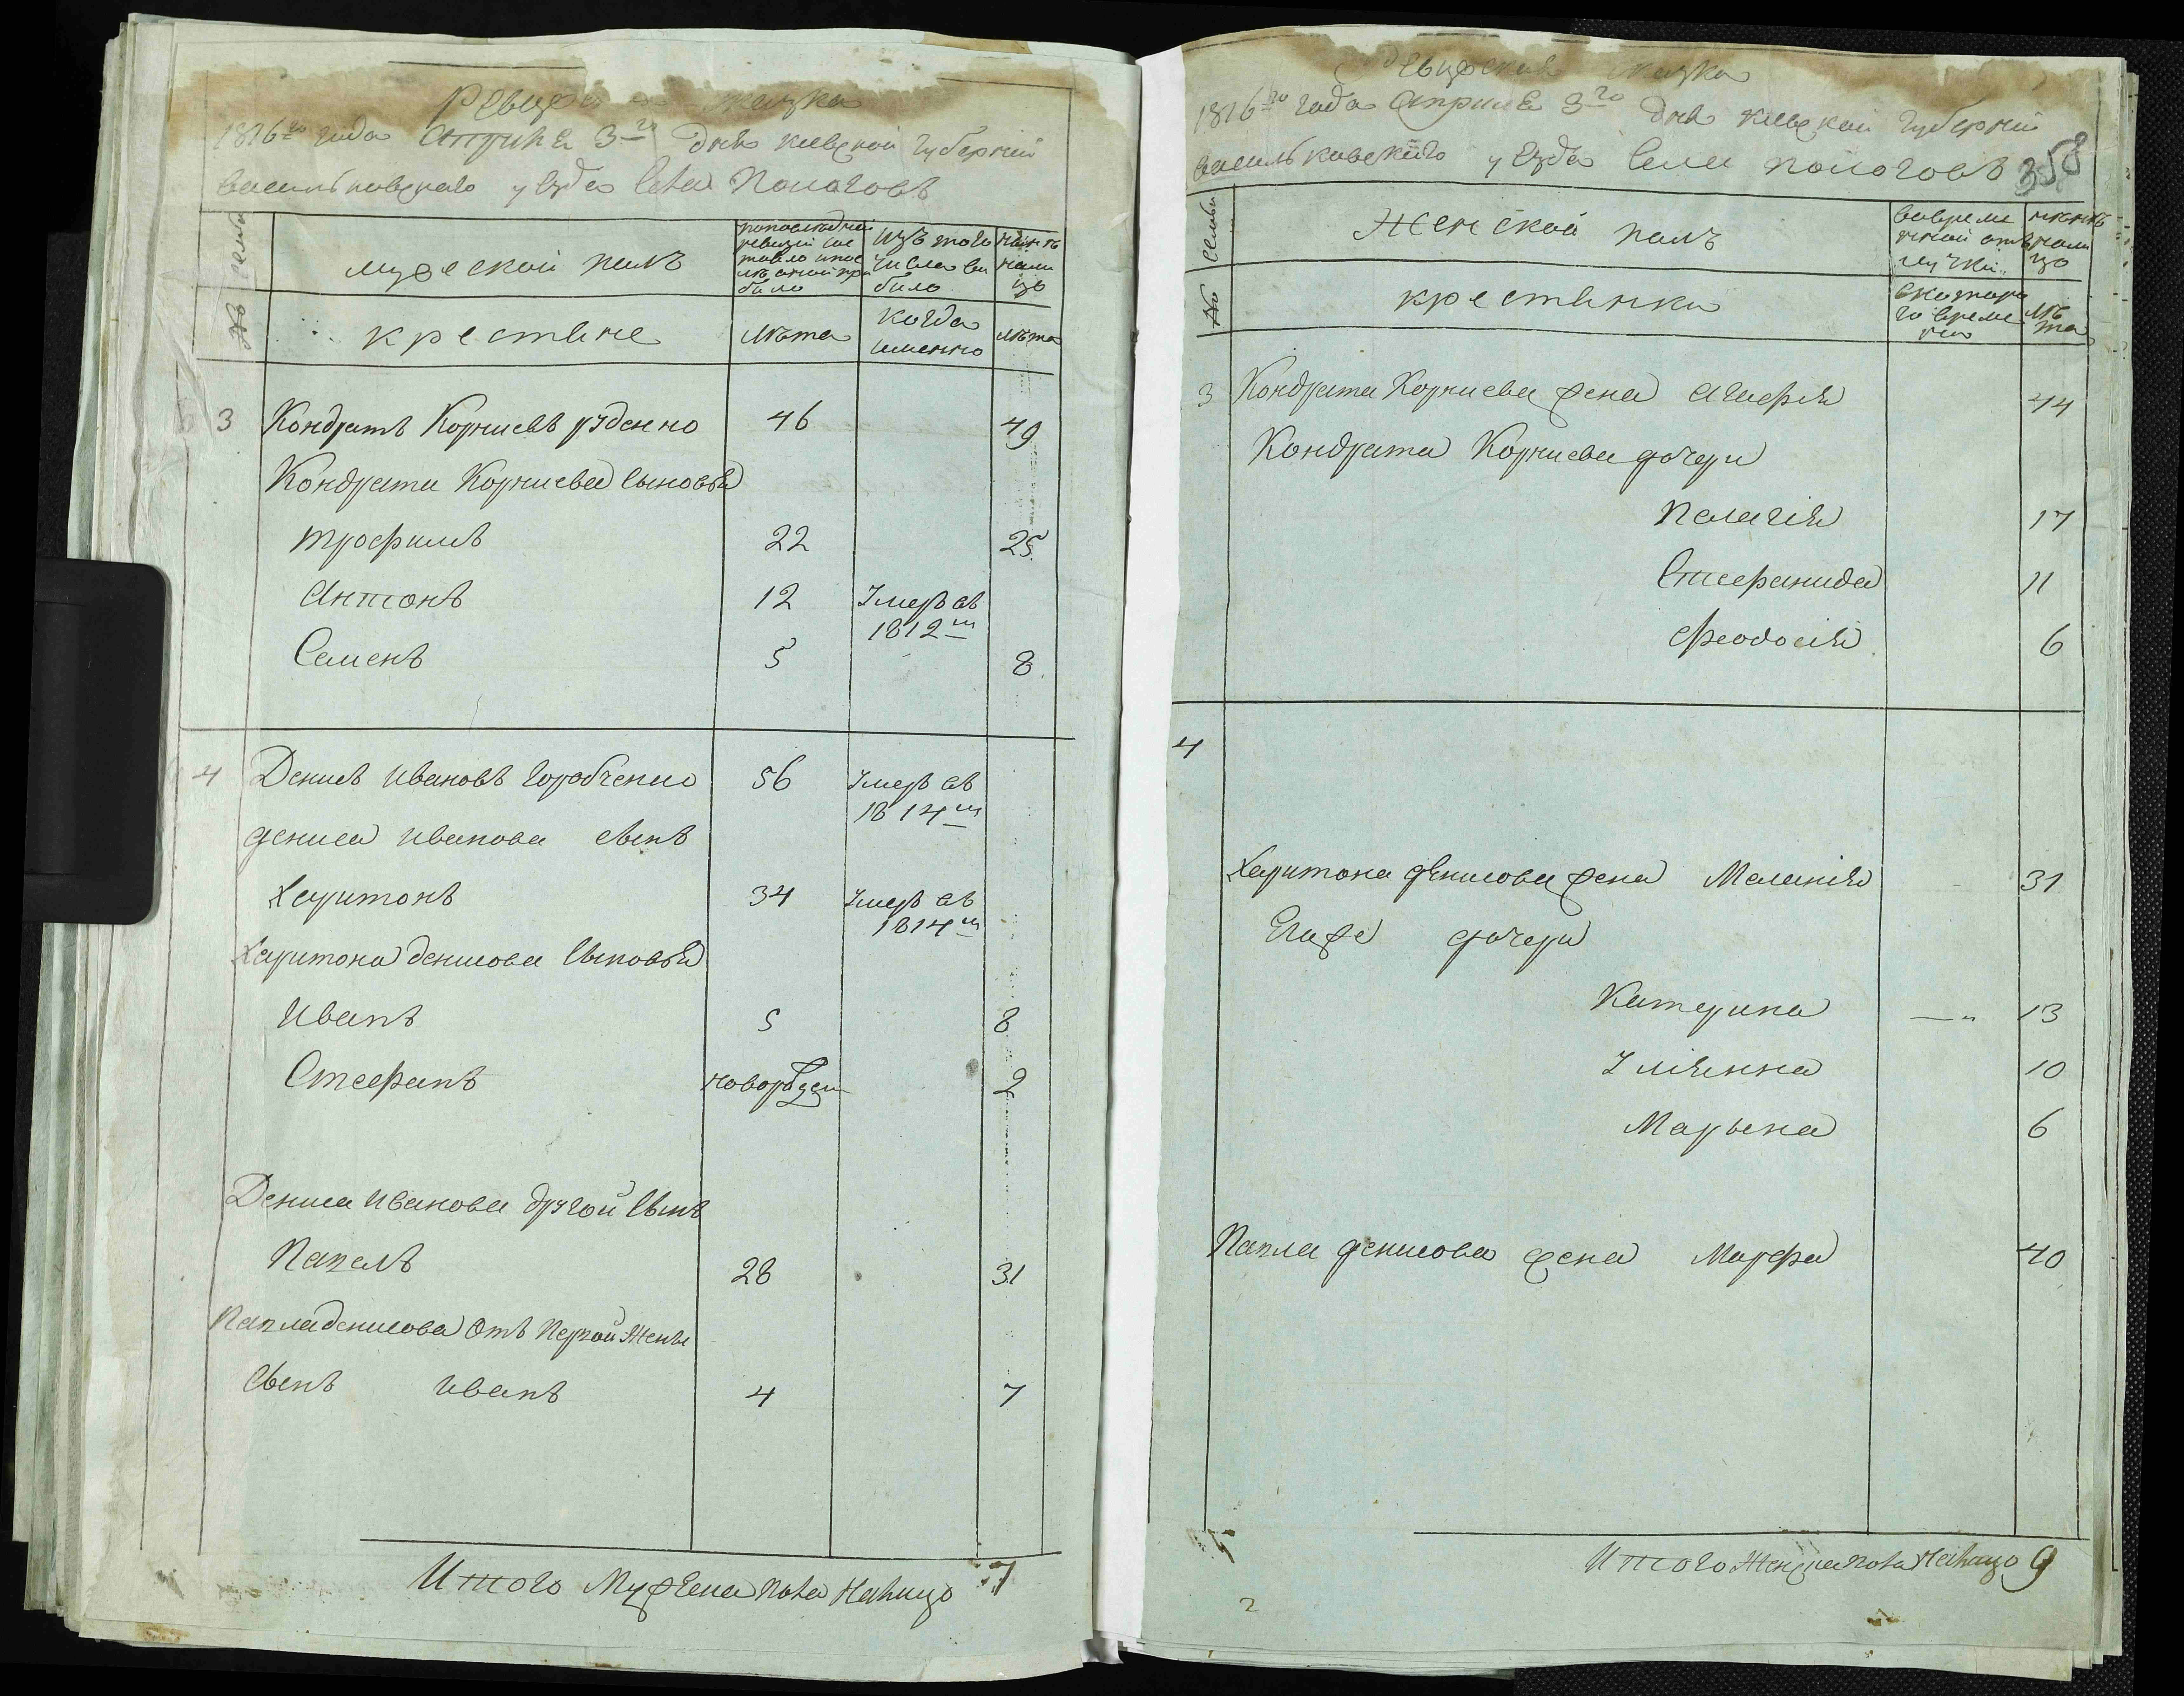 Ревизская сказка
1816го года Априля 3го дня киевской губернии
васильковского уезда села Пологовъ
№ семьи
мужеской полъ
попоследней ревизии состояло и после оной прибыло
изъ того числа выбыло
ныне налицо
крестяне
лѣта
когда именно
лѣта
3 Кондратъ Корниевъ руденко 46 49
Кондрата Корниева сыновья
трофимъ 22 25
Антонъ 12 Умеръ въ 1812м
Семенъ 5 8
4 Денисъ ивановъ горобченко 56 Умеръ въ 1814м
дениса иванова сынъ
Харитонъ 34 Умеръ въ 1814м
Харитона денисова сыновья
Иванъ 5 8
Стефанъ новорозден 2
Дениса иванова другой сынъ
Павелъ 28 31
Павла денисова отъ первой жены
сынъ иванъ 4 7
Итого мужеска пола налицо 7
Ревизская сказка
1816го года Априля 3го дня киевской губернии
васильковского уезда села пологовъ
358
№ семьи
Женской полъ
вовременной отлучки
ныне налицо
крестянки
скоторого времени
лѣта
3 Кондрата Корниева жена агафия 44
Кондрата Корниева дочери
Пелагія 17
Стефанида 11
феодосия 6
4
Харитона денисова жена Маланія 31
Егоже дочери
Катерина —„ 13
Улиянна 10
Марына 6
Павла денисова жена Марфа 40
Итого женска пола налицо 9
2